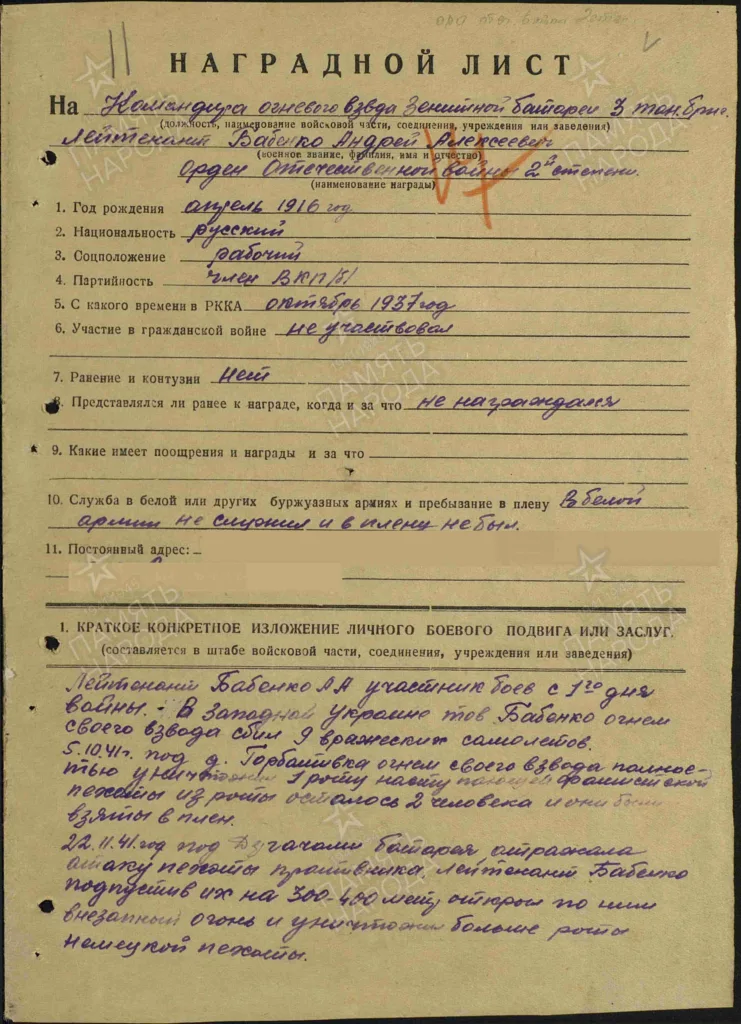 11
НАГРАДНОЙ ЛИСТ
На Командира огневого взвода Зенитной батареи 3 танк. бриг.
(должность, наименование войсковой части, соединения, учреждения или заведения)
Лейтенант Бабенко Андрей Алексеевич
(военное звание, фамилия, имя и отчество)
Орден Отечественной войны 2й степени.
(наименование награды)
1. Год рождения апрель 1916 год
2. Национальность русский
3. Соцположение рабочий
4. Партийность член ВКП/б/
5. С какого времени в РККА октябрь 1937 год
6. Участие в гражданской войне не участвовал
7. Ранение и контузии Нет
8. Представлялся ли ранее к награде, когда и за что не награждался
9. Какие имеет поощрения и награды и за что
10. Служба в белой или других буржуазных армиях и пребывание в плену В белой
армии не служил и в плену не был.
11. Постоянный адрес:
1. КРАТКОЕ КОНКРЕТНОЕ ИЗЛОЖЕНИЕ ЛИЧНОГО БОЕВОГО ПОДВИГА ИЛИ ЗАСЛУГ.
(составляется в штабе войсковой части, соединения, учреждения или заведения)
Лейтенант Бабенко АА участник боев с 1го дня
войны. - В Западной Украине тов Бабенко огнем
своего взвода сбил 9 вражеских самолетов.
5.10.41г. под д. Горбативка огнем своего взвода полнос-
тью уничтожил 1 роту наступающей фашистской
пехоты из роты осталось 2 человека и они были
взяты в плен.
22.11.41 год под Дугачами батарея отражала
атаку пехоты противника. Лейтенант Бабенко
подпустив их на 300-400 метр открыл по ним
внезапный огонь и уничтожил больше роты
немецкой пехоты.
ПАМЯТЬ НАРОДА